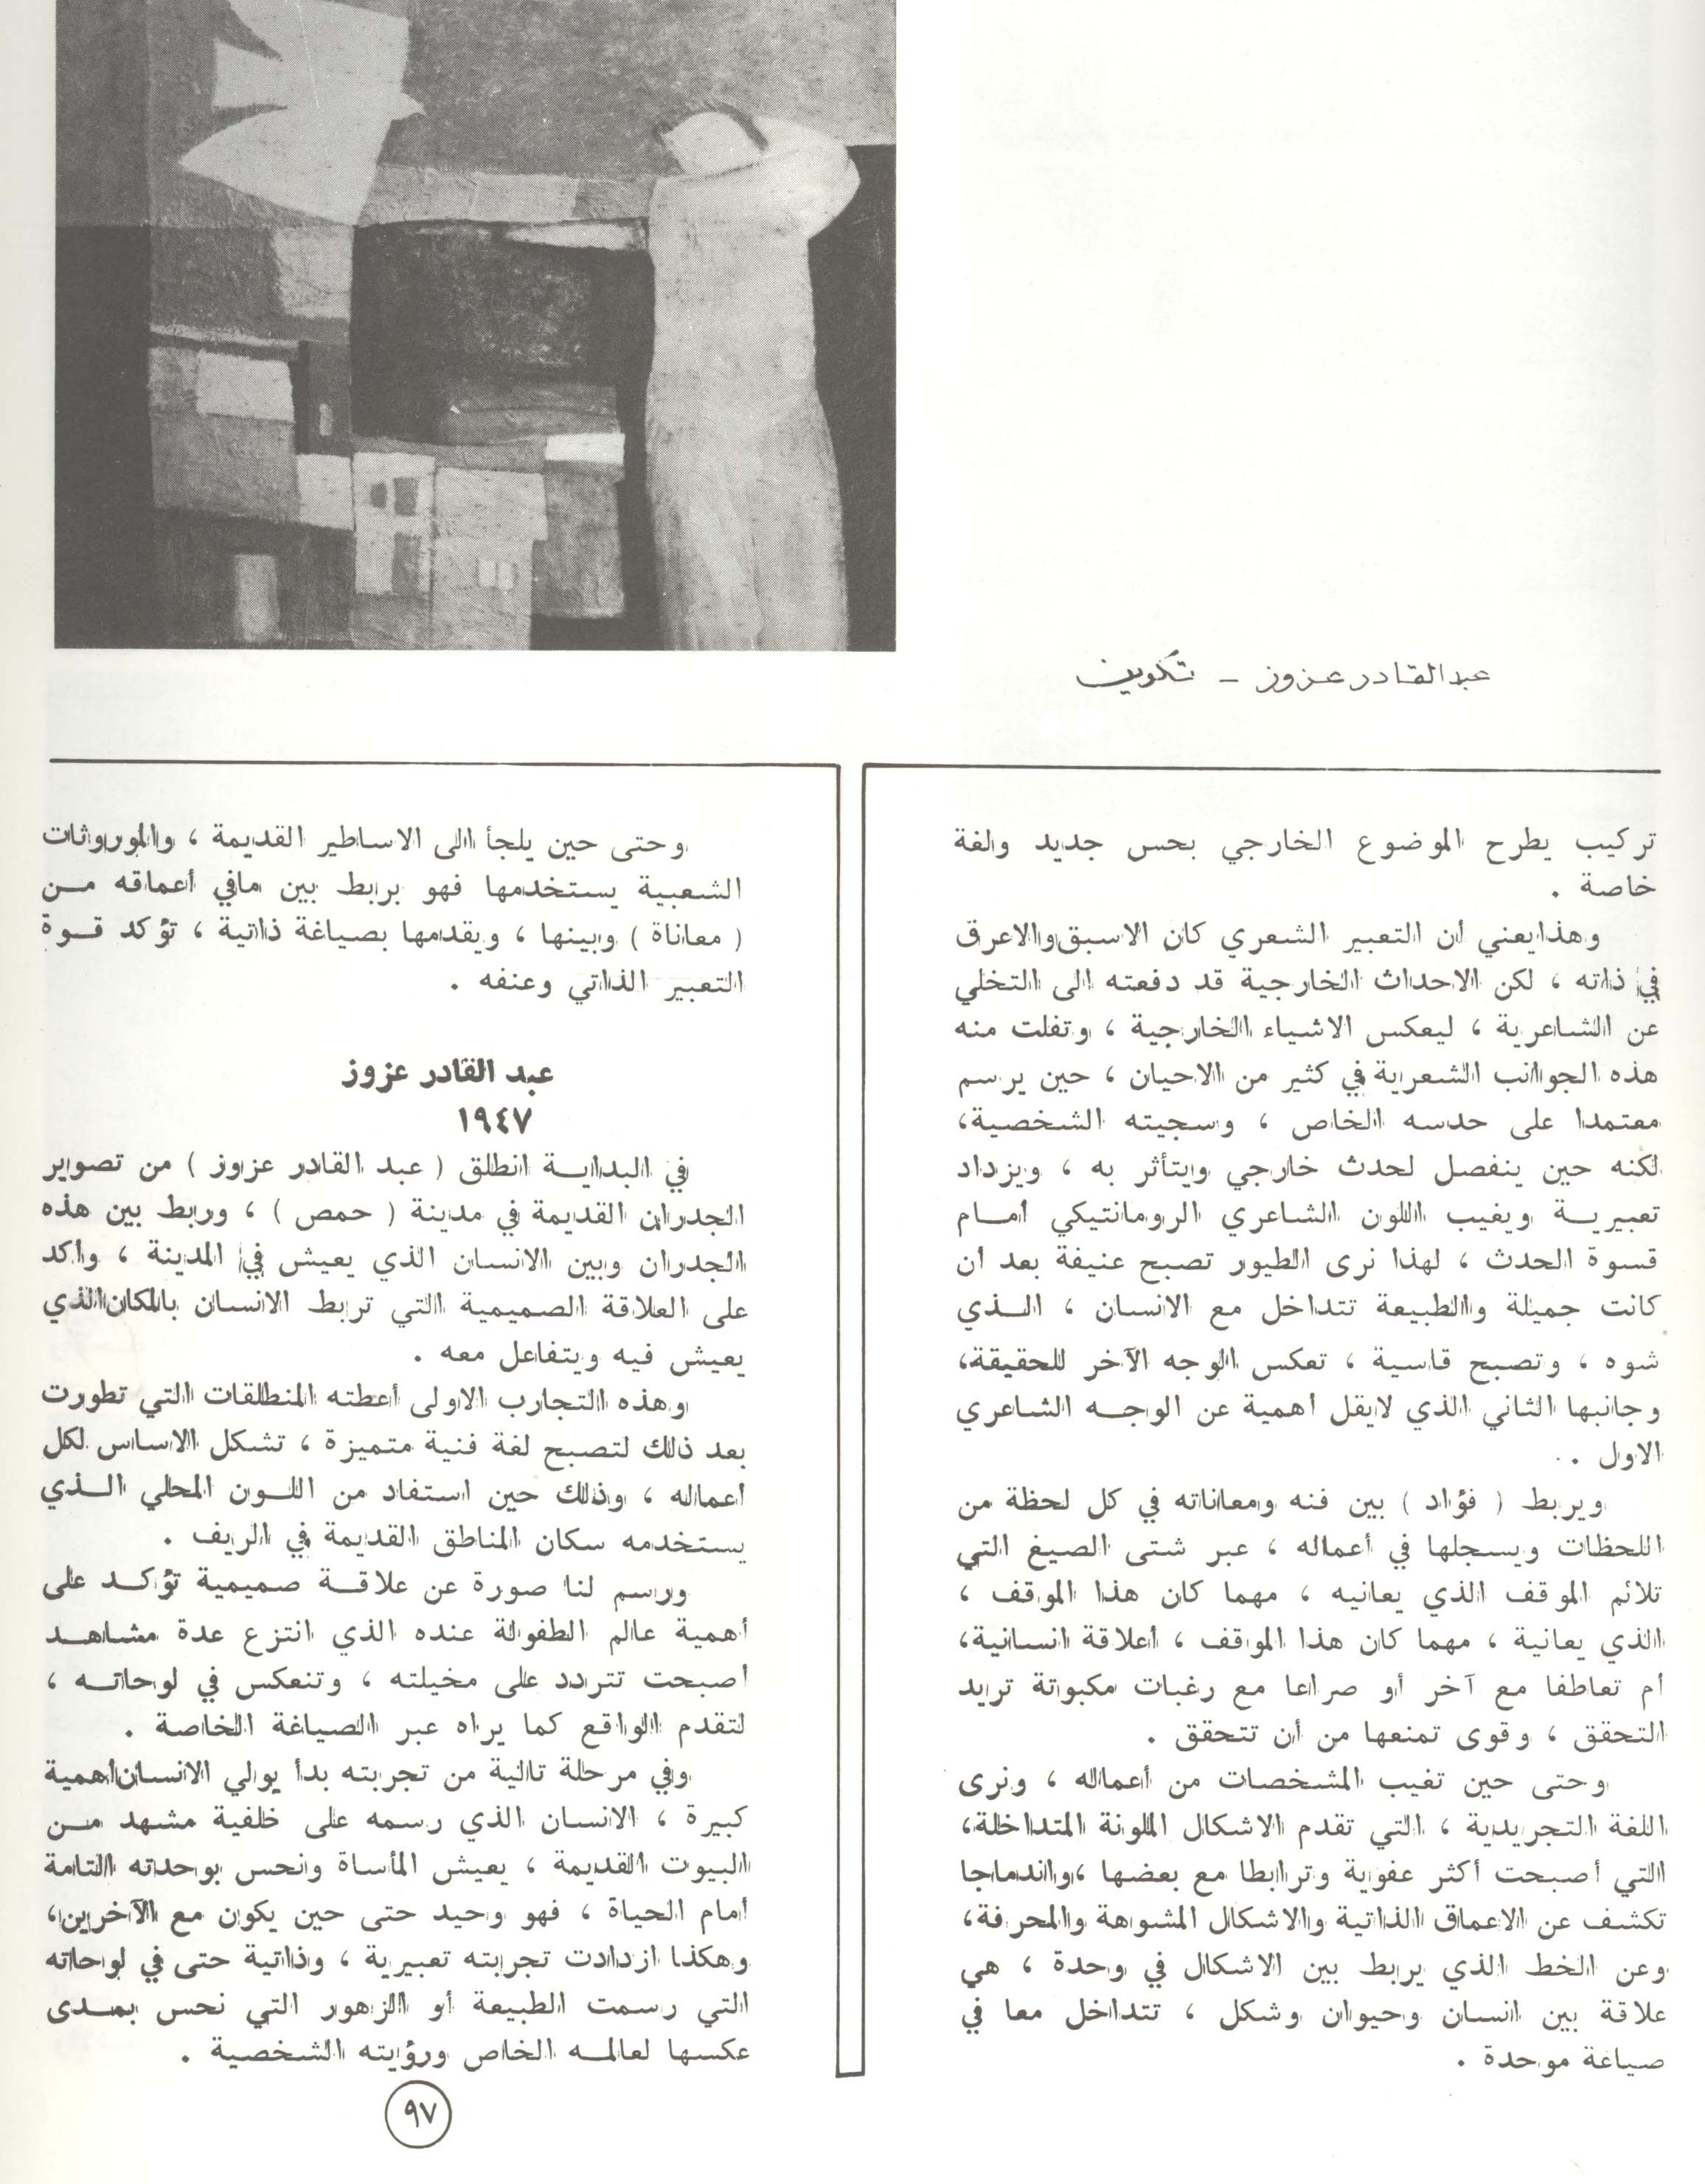 عبد القادر عزوز - تكوين
تركيب يطرح الموضوع الخارجي بحس جديد ولغة
خاصة .
وهذا يعني أن التعبير الشعري كان الاسبق والاعرق
في ذاته ، لكن الاحداث الخارجية قد دفعته الى التخلي
عن الشاعرية ، ليعكس الاشياء الخارجية ، وتفلت منه
هذه الجوانب الشعرية في كثير من الاحيان ، حين يرسم
معتمدا على حدسه الخاص ، وسجيته الشخصية،
لكنه حين ينفصل لحدث خارجي ويتأثر به ، ويزداد
تعبيرية ويغيب اللون الشاعري الرومانتيكي أمام
قسوة الحدث ، لهذا نرى الطيور تصبح عنيفة بعد ان
كانت جميلة والطبيعة تتداخل مع الانسان ، الذي
شوه ، وتصبح قاسية ، تعكس الوجه الآخر للحقيقة،
وجانبها الثاني الذي لايقل أهمية عن الوجه الشاعري
الاول .
ويربط ( فؤاد ) بين فنه ومعاناته في كل لحظة من
اللحظات ويسجلها في أعماله ، عبر شتى الصيغ التي
تلائم الموقف الذي يعانيه ، مهما كان هذا الموقف ،
الذي يعانية ، مهما كان هذا الموقف ، أعلاقة انسانية،
أم تعاطفا مع آخر أو صراعا مع رغبات مكبوتة تريد
التحقق ، وقوى تمنعها من أن تتحقق .
وحتى حين تغيب المشخصات من أعماله ، ونرى
اللغة التجريدية ، التي تقدم الاشكال الملونة المتداخلة،
التي أصبحت أكثر عفوية وترابطا مع بعضها ،واندماجا
تكشف عن الاعماق الذاتية والاشكال المشوهة والمحرفة،
وعن الخط الذي يربط بين الاشكال في وحدة ، هي
علاقة بين انسان وحيوان وشكل ، تتداخل معا في
صياغة موحدة .
وحتى حين يلجأ الى الاساطير القديمة ، والموروثات
الشعبية يستخدمها فهو يربط بين مافي أعماقه من
( معاناة ) وبينها ، ويقدمها بصياغة ذاتية ، تؤكد قوة
التعبير الذاتي وعنفه .
عبد القادر عزوز
١٩٤٧
في البداية انطلق ( عبد القادر عزوز ) من تصوير
الجدران القديمة في مدينة ( حمص ) ، وربط بين هذه
الجدران وبين الانسان الذي يعيش في المدينة ، وأكد
على العلاقة الصميمية التي تربط الانسان بالمكان الذي
يعيش فيه ويتفاعل معه .
وهذه التجارب الاولى أعطته المنطلقات التي تطورت
بعد ذلك لتصبح لغة فنية متميزة ، تشكل الاساس لكل
أعماله ، وذلك حين استفاد من اللون المحلي الذي
يستخدمه سكان المناطق القديمة في الريف .
ورسم لنا صورة عن علاقة صميمية تؤكد على
أهمية عالم الطفولة عنده الذي انتزع عدة مشاهد
أصبحت تتردد على مخيلته ، وتنعكس في لوحاته ،
لتقدم الواقع كما يراه عبر الصياغة الخاصة .
وفي مرحلة تالية من تجربته بدأ يوالي الانسان أهمية
كبيرة ، الانسان الذي رسمه على خلفية مشهد من
البيوت القديمة ، يعيش المأساة ونحس بوحدته التامة
أمام الحياة ، فهو وحيد حتى حين يكون مع الآخرين،
وهكذا ازدادت تجربته تعبيرية ، وذاتية حتى في لوحاته
التي رسمت الطبيعة أو الزهور التي نحس بمدى
عكسها لعالمه الخاص ورؤيته الشخصية .
٩٧